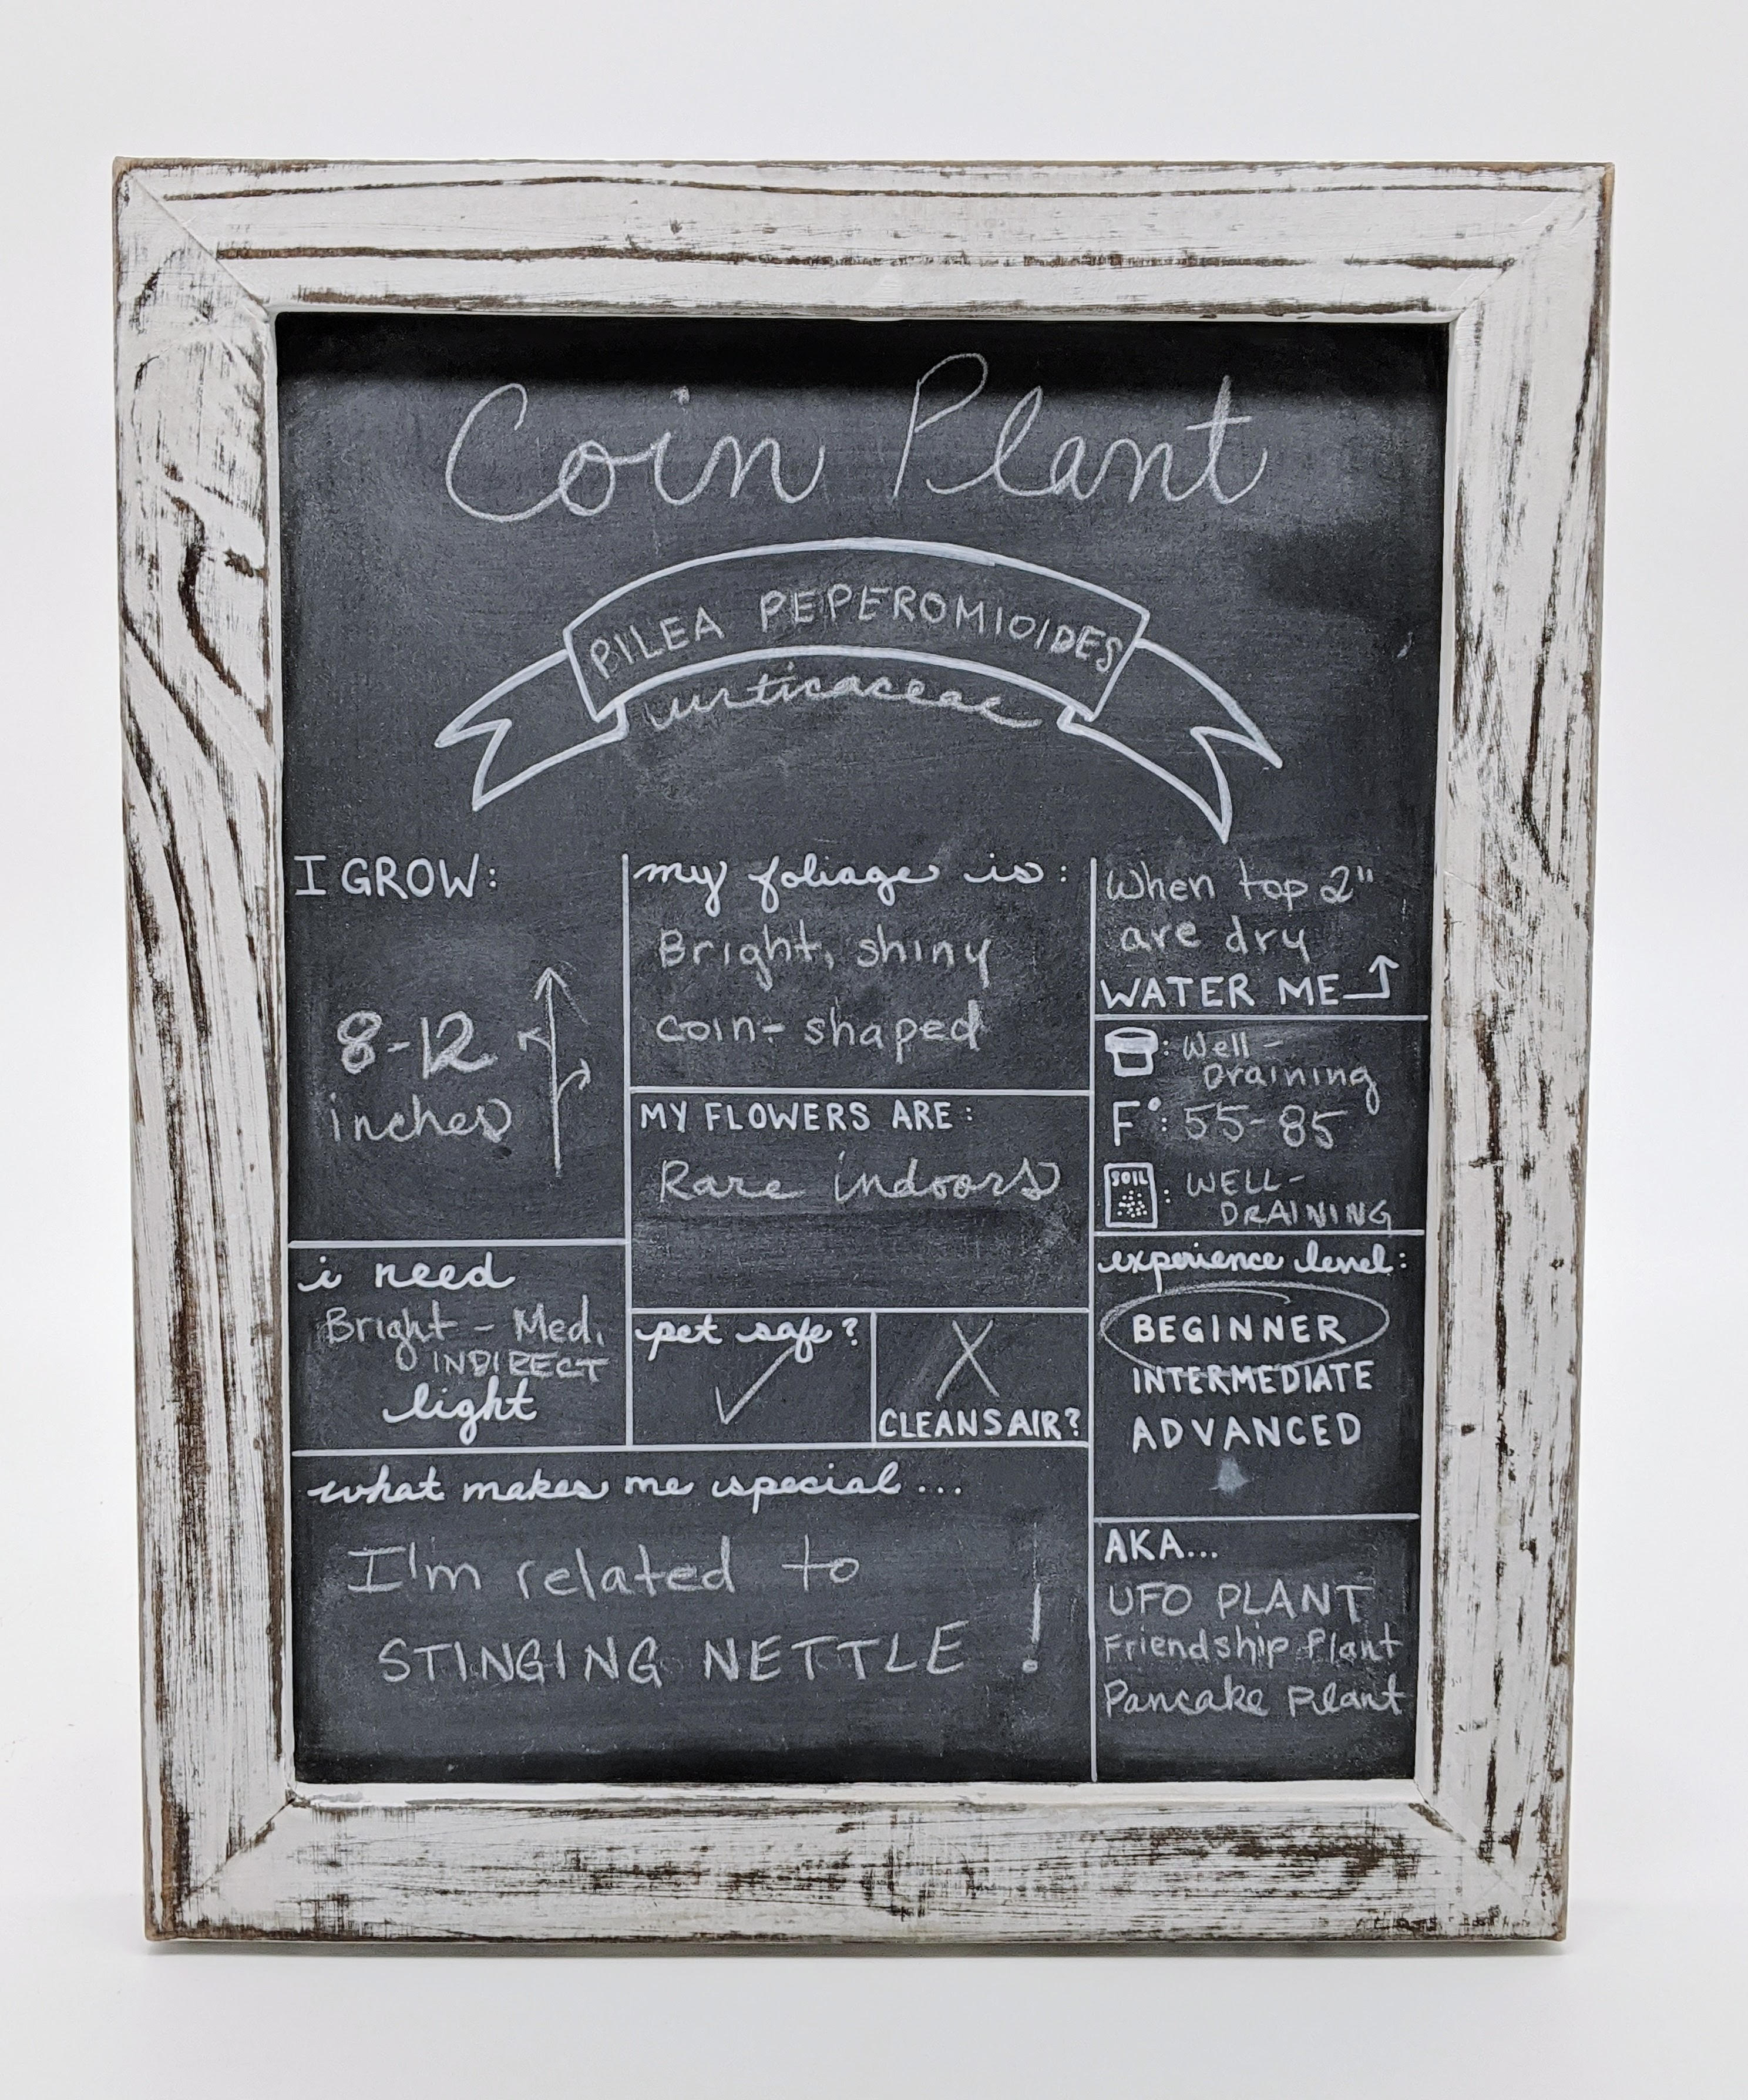 Coin Plant
PILEA PEPEROMIOIDES
urticaceae
I GROW:
8-12
inches
i need
Bright - Med.
INDIRECT
light
my foliage is:
Bright, shiny
coin-shaped
MY FLOWERS ARE:
Rare indoors
pet safe?
CLEANS AIR?
what makes me special...
I'm related to
STINGING NETTLE !
When top 2"
are dry
WATER ME
: Well-
Draining
F°: 55-85
SOIL : WELL-
DRAINING
experience level:
BEGINNER
INTERMEDIATE
ADVANCED
AKA...
UFO PLANT
Friendship Plant
Pancake Plant